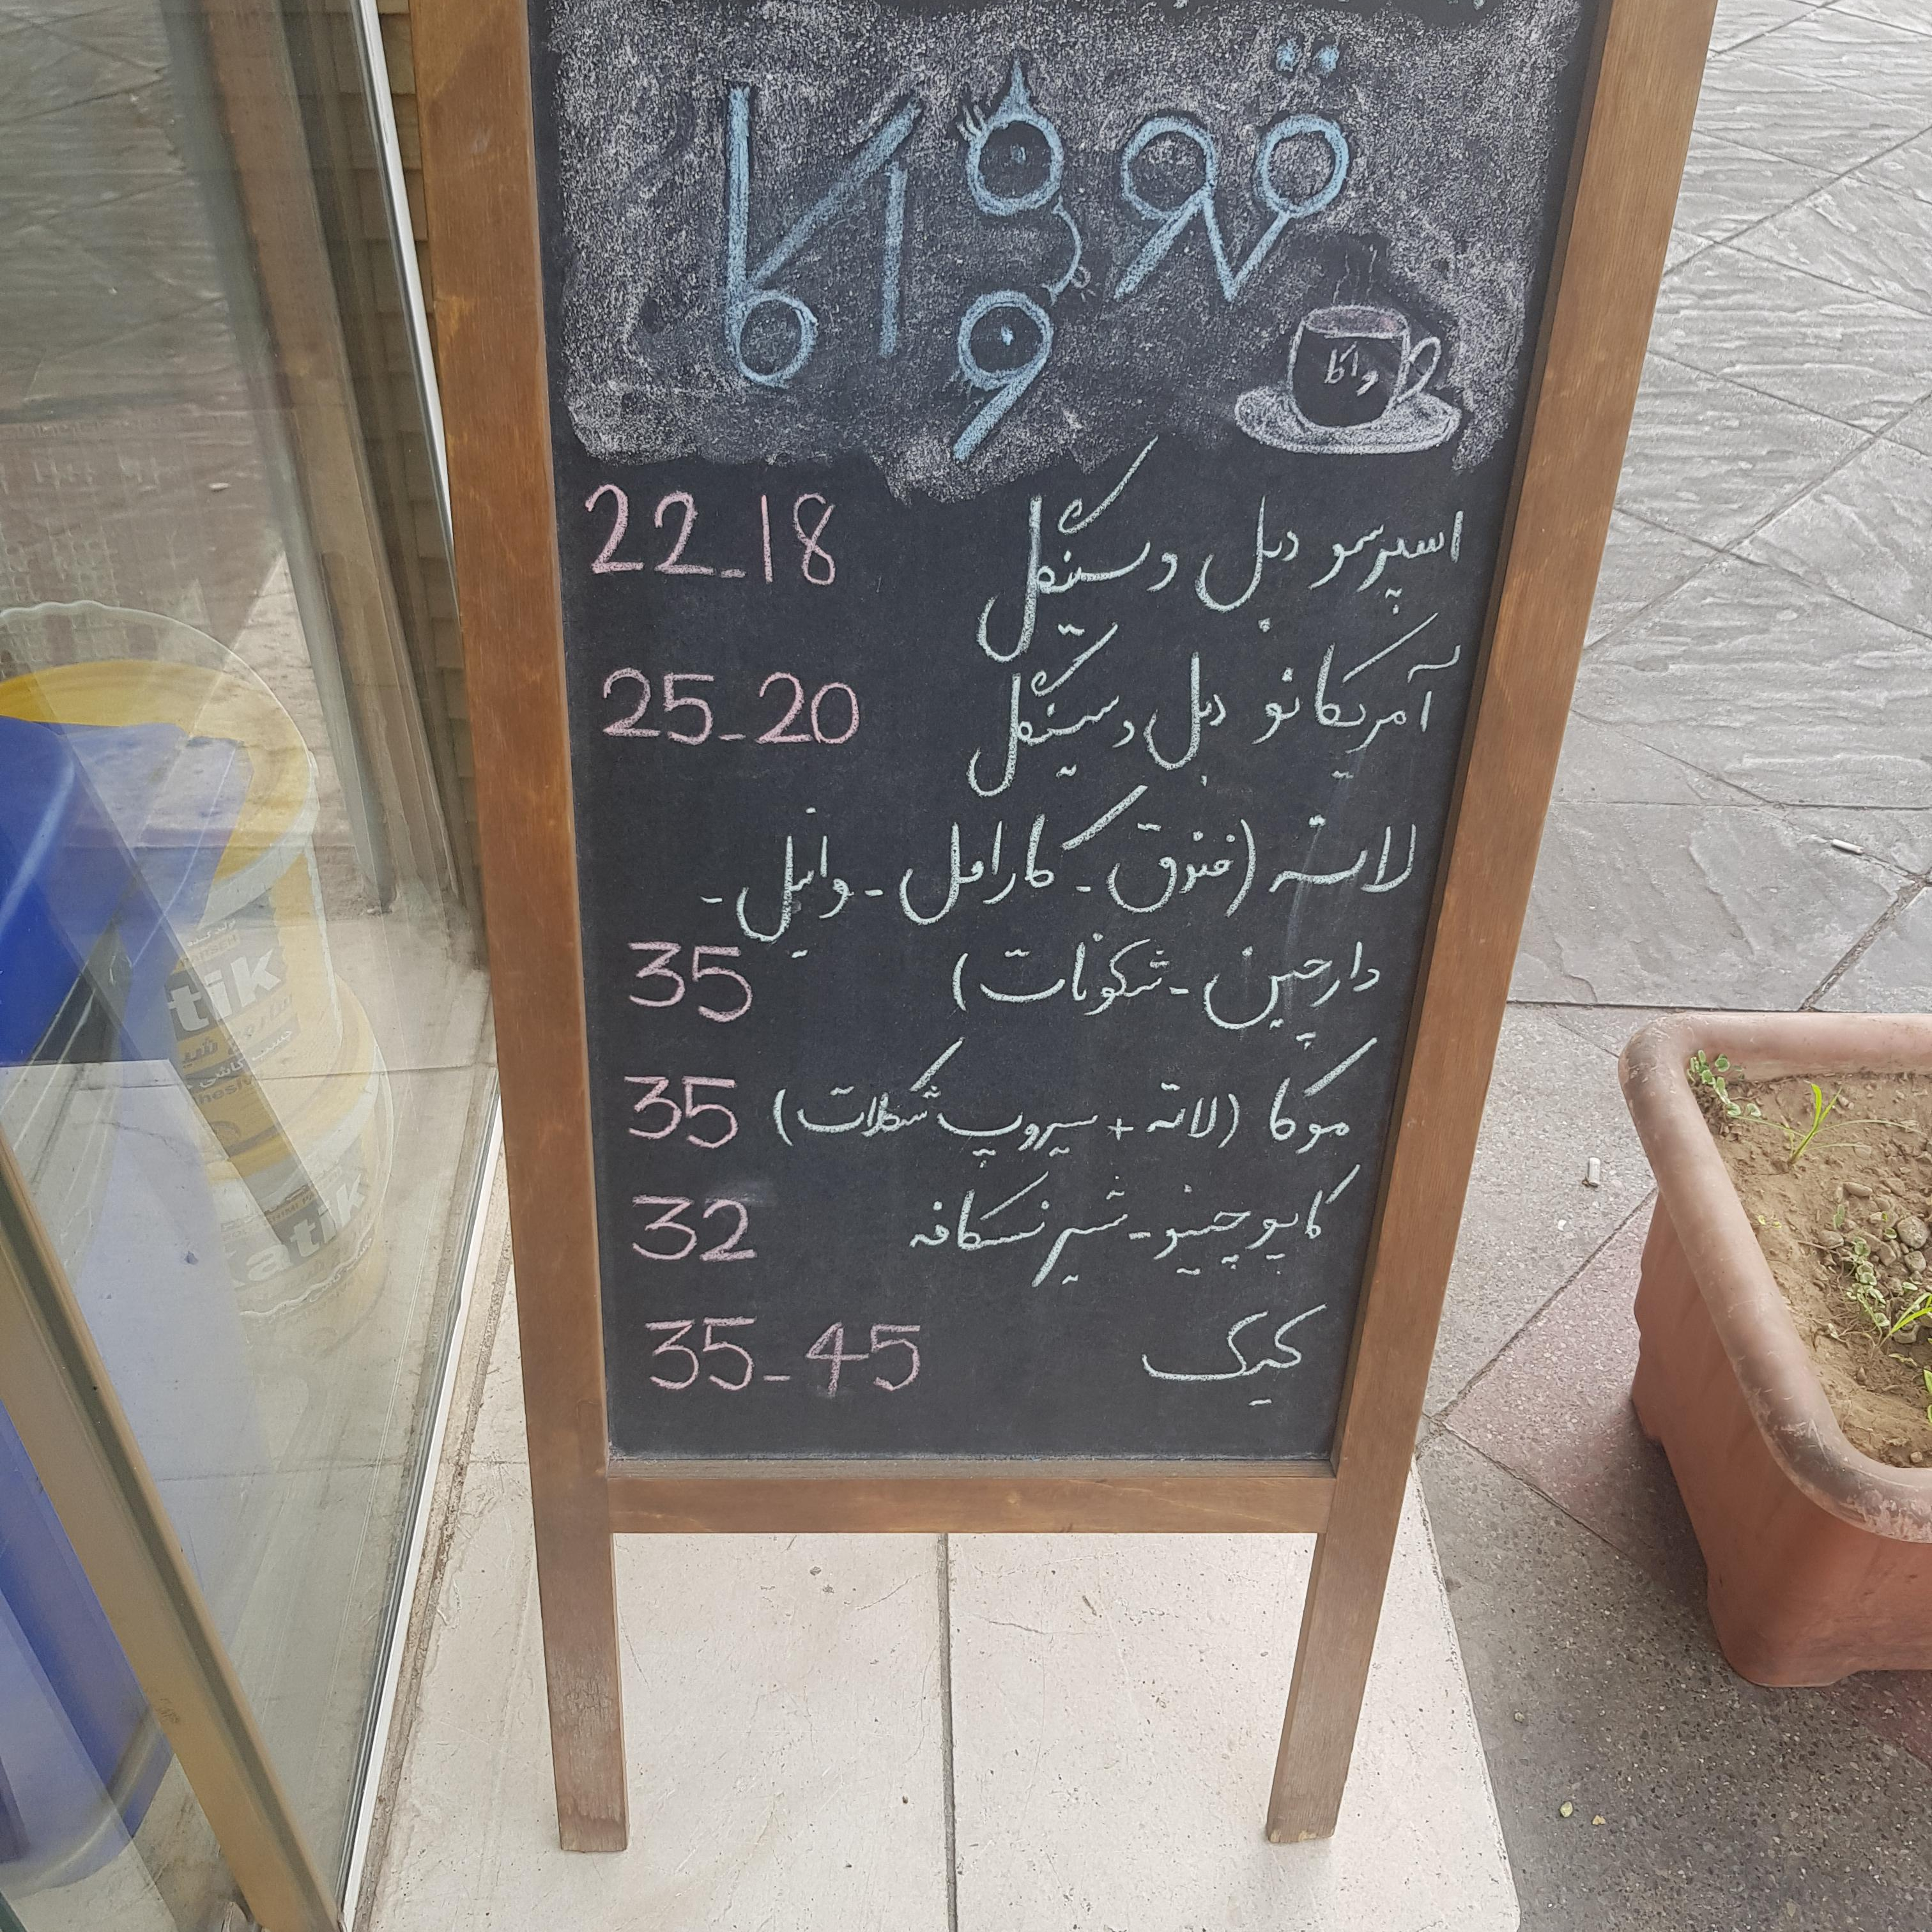 قهوه واکا
واکا
اسپرسو دبل و سینگل 22_18
آمریکانو دبل و سینگل 25_20
لاته (فندق - کارامل - وانیل -
دارچین - شکولات) 35
موکا (لاته + سیروپ شکلات) 35
کاپوچینو - شیر نسکافه 32
کیک 35_45
tik
katik